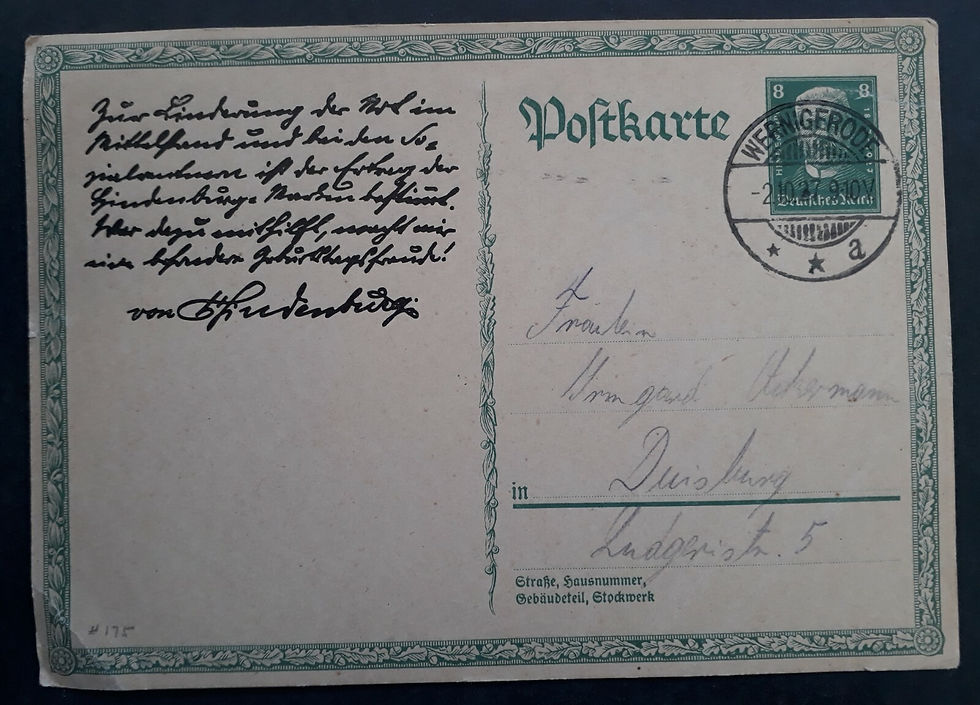 Zur Linderung der Not im
Mittelstand und bei den So-
zialrentnern ist der Ertrag der
Hindenburg-Marken bestimmt.
Wer dazu mithilft, macht mir
eine besondere Geburtstagsfreude!
von Hindenburg.
Postkarte
8 8
Deutsches Reich
WERNIGERODE
-2.10.27.9-10V
* * a
Fräulein
Irmgard Ackermann
in Duisburg
Ludgeristr. 5
Straße, Hausnummer,
Gebäudeteil, Stockwerk
#175